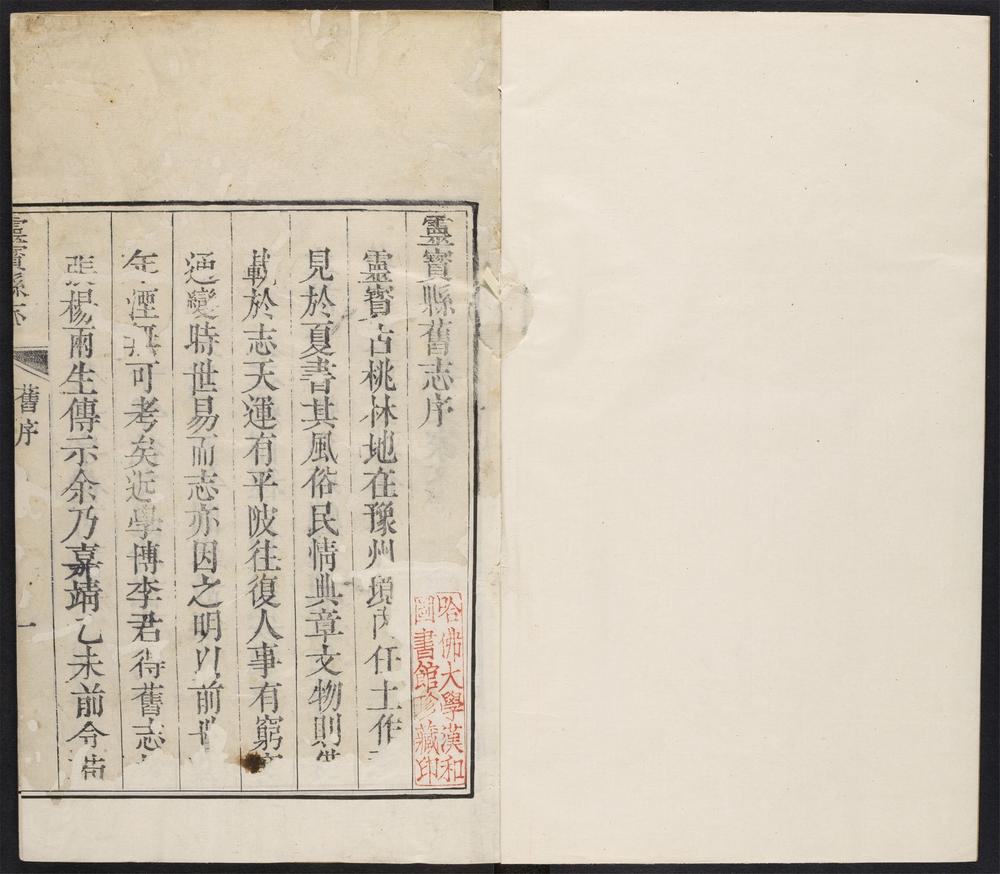 靈寳縣舊志序
靈寳古桃林地在豫州境內任土作
見於夏書其風俗民情典章文物則
載於志天運有平陂往復人事有窮
通變時世易而志亦因之明以前
年湮無可考矣近學博李君得舊志
楊兩生傳示余乃嘉靖乙未前令
靈寳縣志
舊序
一
哈佛大學漢和
圖書館珍藏印